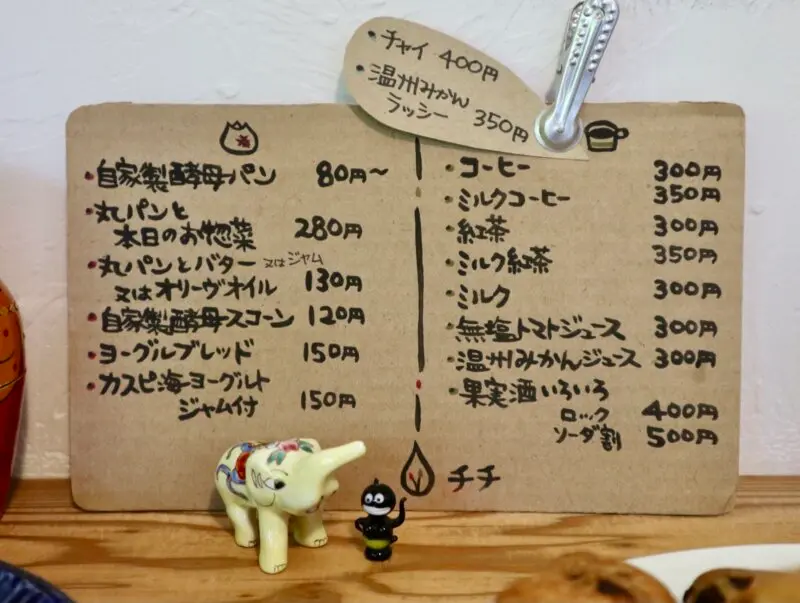 ・チャイ 400円
・温州みかん
ラッシー 350円
・自家製酵母パン 80円〜
・丸パンと
本日のお惣菜 280円
・丸パンとバター 又はジャム
又はオリーヴオイル 130円
・自家製酵母スコーン 120円
・ヨーグルブレッド 150円
・カスピ海ヨーグルト
ジャム付 150円
・コーヒー 300円
・ミルクコーヒー 350円
・紅茶 300円
・ミルク紅茶 350円
・ミルク 300円
・無塩トマトジュース 300円
・温州みかんジュース 300円
・果実酒いろいろ
ロック 400円
ソーダ割 500円
チチ